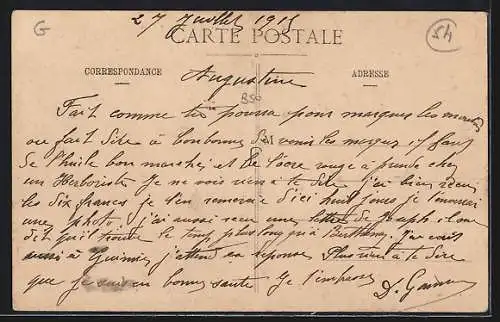 G
27 Juillet 1915
54
CARTE POSTALE
CORRESPONDANCE
ADRESSE
Augustine
B50
Fait comme tu pourra pour marquer les
ou fait dire à les marques il faut
de l'huile bon marché et de l'ocre rouge à prendre chez
un Herboriste Je ne vois rien à te dire j'ai bien reçu
les dix francs je t'en remercie d'ici huit jours je t'enverrai
une photo j'ai aussi reçu une lettre de Joseph
dit qu'il trouve le temp plus long qu'à
aussi à j'attend sa reponse Plus rien à te dire
que je suis en bonne santé Je t'embrasse
D.